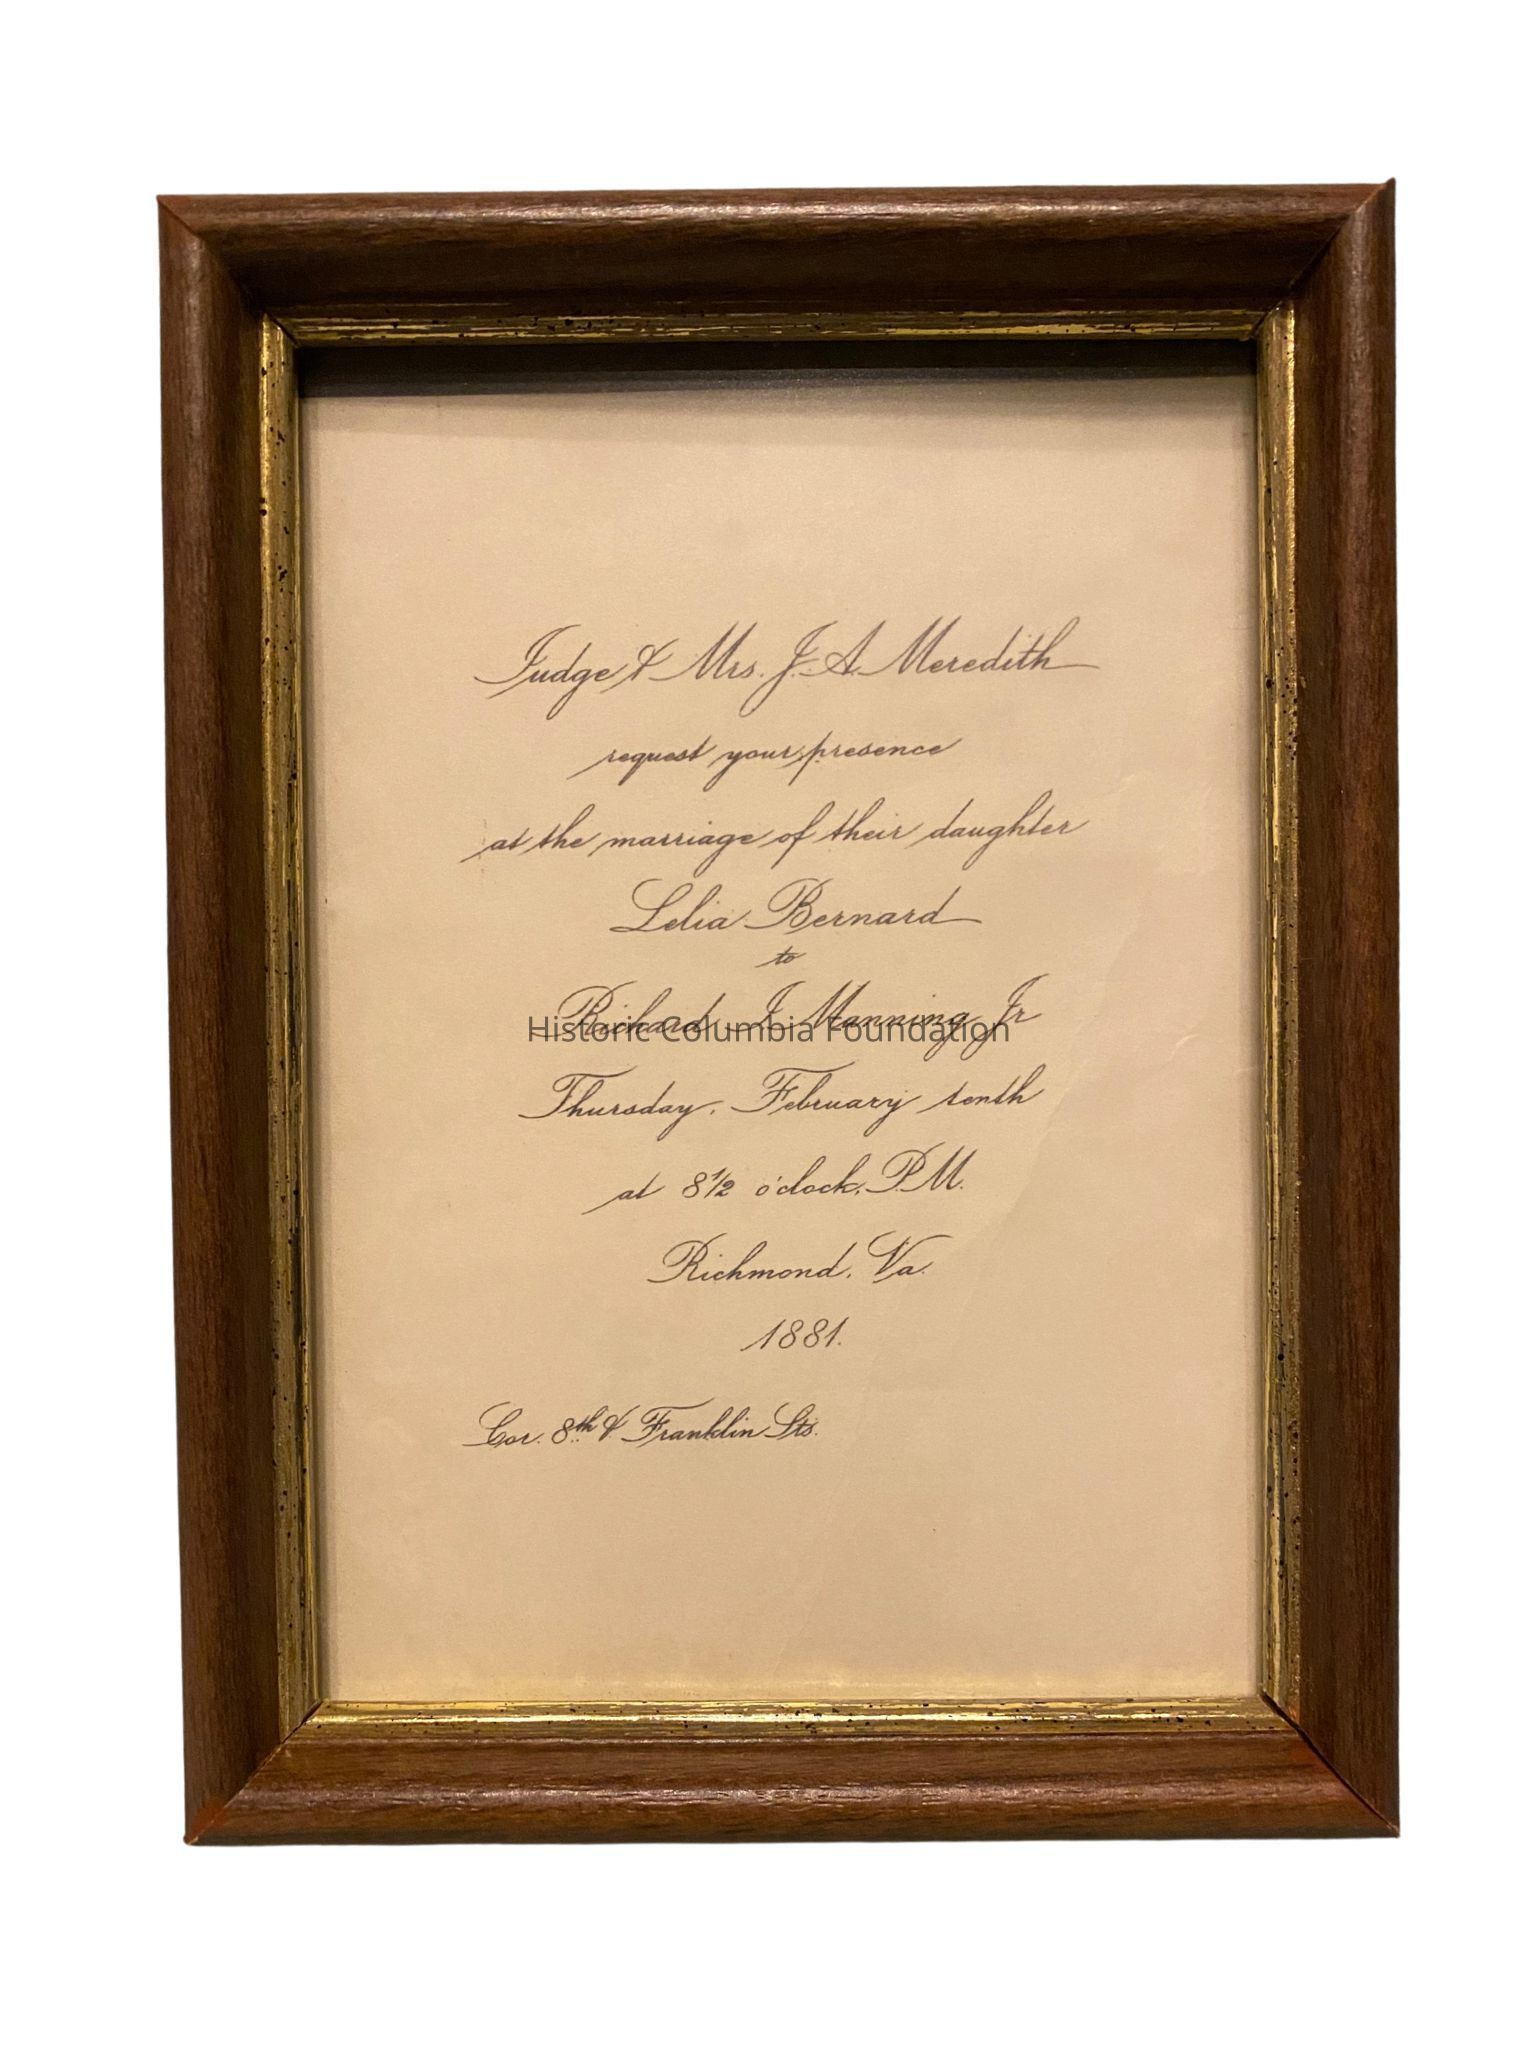 Judge & Mrs. J. A. Meredith
request your presence
at the marriage of their daughter
Lelia Bernard
to
Richard I Manning Jr
Historic Columbia Foundation
Thursday, February tenth
at 8 1/2 o'clock, P.M.
Richmond, Va.
1881.
Cor. 8th & Franklin Sts.